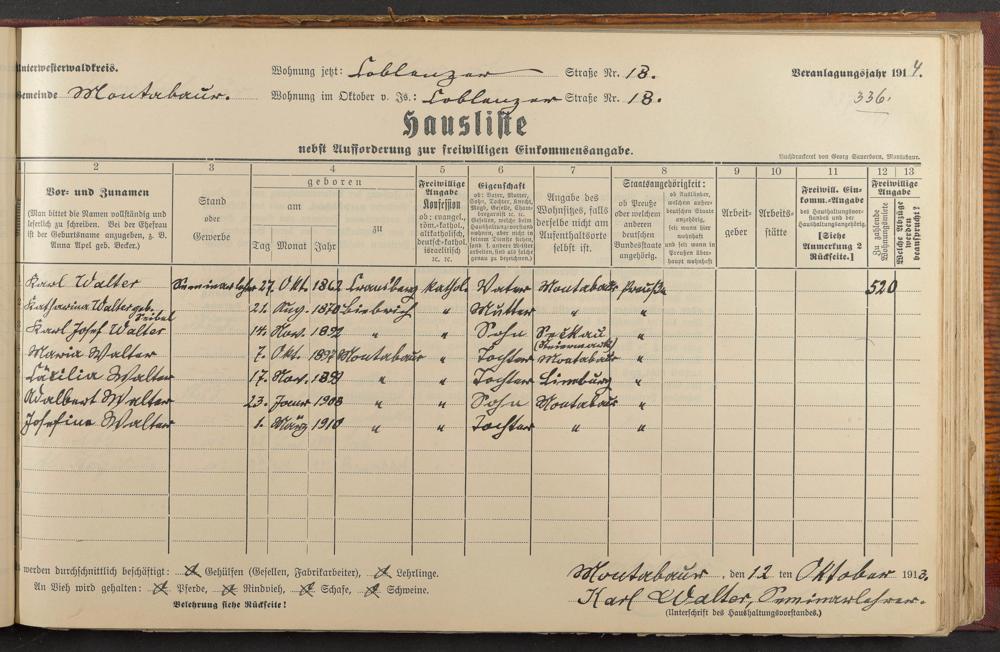 Unterwesterwaldkreis.
Wohnung jetzt: Coblenzer Straße Nr. 18.
Veranlagungsjahr 1914.
Gemeinde Montabaur.
Wohnung im Oktober v. Js.: Coblenzer Straße Nr. 18.
336.
Hausliste
nebst Aufforderung zur freiwilligen Einkommensangabe.
Buchdruckerei von Georg Sauerborn, Montabaur.
2 3 4 5 6 7 8 9 10 11 12 13
Vor- und Zunamen
(Man bittet die Namen vollständig und
leserlich zu schreiben. Bei der Ehefrau
ist der Geburtsname anzugeben, z. B.
Anna Apel geb. Becker.)
Stand
oder
Gewerbe
geboren
am
zu
Tag Monat Jahr
Freiwillige
Angabe
Konfession
ob: evangel.,
röm.-kathol.,
altkatholisch,
deutsch-kathol.,
israelitisch
ec. ec.
Eigenschaft
ob: Vater, Mutter,
Sohn, Tochter, Knecht,
Magd, Geselle, Cham-
bregarnist ec. ec.
Gesellen, welche beim
Haushaltungsvorstand
wohnen, aber nicht in
seinem Dienste stehen,
sind f. andere Meister
arbeiten, sind als solche
genau zu bezeichnen.)
Angabe des
Wohnsitzes, falls
derselbe nicht am
Aufenthaltsorte
selbst ist.
Staatsangehörigkeit:
ob Preuße
oder welchem
anderen
deutschen
Bundesstaate
angehörig.
ob Ausländer,
welchem außer-
deutschen Staate
angehörig,
seit wann hier
wohnhaft
und seit wann in
Preußen über-
haupt wohnhaft
Arbeit-
geber
Arbeits-
stätte
Freiwill. Ein-
komm.-Angabe
des Haushaltungsvor-
standes und der
Haushaltungsangehörig.
[Siehe
Anmerkung 2
Rückseite.]
Freiwillige
Angabe
Zu zahlende
Wohnungsmiete
Welche Abzüge
werden
beansprucht?
Karl Walter Seminarlehrer 27. Okt. 1862 Cransberg kathol. Vater Montabaur Preuße 520
Katharina Walter geb. 21. Aug. 1870 Biebrich " Mutter " "
Karl Josef Walter 14. Nov. " Sohn Seckau "
(Steiermark)
Maria Walter 7. Okt. 1897 Montabaur " Tochter Montabaur "
Cäcilia Walter 17. Nov. 1899 " " Tochter Limburg "
Adalbert Walter 23. Januar 1908 " " Sohn Montabaur "
Josefine Walter 1. März 1910 " " Tochter " "
werden durchschnittlich beschäftigt: Gehülfen (Gesellen, Fabrikarbeiter), Lehrlinge.
An Vieh wird gehalten: Pferde, Rindvieh, Schafe, Schweine.
Belehrung siehe Rückseite!
Montabaur, den 12 ten Oktober 1913.
Karl Walter, Seminarlehrer.
(Unterschrift des Haushaltungsvorstandes.)